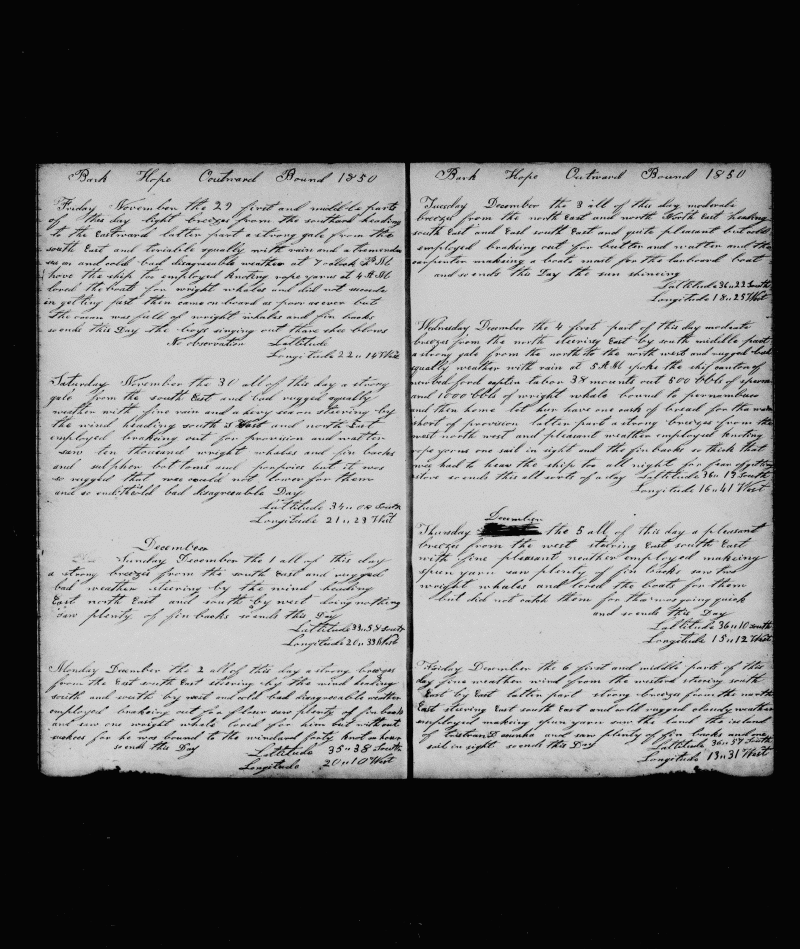 Bark Hope Outward Bound 1850
Friday November the 29 first and middle parts
of this day light breezes from the southard heading
to the Eastward latter part a strong gale from the
south East and terriable squally with rain and a tremendou
sea on and cold bad disagreeable weather at 7 oclock P M
hove the ship to employed knoting rope yarns at 4 A M
lored the boats for wright whales and did not succede
in getting fast then came on board as poor as ever but
the ocean was full of wright whales and fin backs
so ends this Day the boys singing out there she blows
No observation Lattitude
Longitude 22 " 14 West
Saturday November the 30 all of this day a strong
gale from the south East and bad rugged squally
weather with fine rain and a hevy sea on stering by
the wind heading south S West and north East
employed braking out for provision and watter
saw ten thousand wright whales and fin backs
and sulpher bottoms and porpoise but it was
so rugged that we would not lower for them
and so ends this old bad disagreeable Day
Lattitude 34 " 08 South
Longitude 21 " 23 West
December
Sunday December the 1 all of this day
a strong breezes from the south East and rugged
bad weather stering by the wind heading
East north East and south by west doing nothing
saw plenty of fin backs so ends this Day
Lattitude 33 " 58 South
Longitude 20 " 33 West
Monday December the 2 all of this day a strong breezes
from the East south East stering by the wind heading
south and south by west and cold bad disagreeable weather
employed braking out for flour saw plenty of fin backs
and saw one wright whale lored for him but without
sucksess for he was bound to the windard forty knots an hour
so ends this Day Lattitude 35 " 38 South
Longitude 20 " 10 West
Bark Hope Outward Bound 1850
Tuesday December the 3 all of this day moderate
breezes from the north East and north North East heading
south East and East south East and quite pleasant but cold
employed braking out for butter and watter and the
carpenter making a boats mast for the larboard boat
and so ends this Day the sun shining
Lattitude 36 " 22 South
Longitude 18 " 25 West
Wednesday December the 4 first part of this day moderate
breezes from the north stering East by south middle part
a strong gale from the north to the north west and rugged bad
squally weather with rain at 5 A M spoke the ship canton of
new bed ford captin tabor 38 mounts out 500 bbls of sperm
and 1000 bbls of wright whale bound to pernambuco
and then home let her have one cask of bread for tha was
short of provision latter part a strong breezes from the
west north west and pleasant weather employed knoting
rope yorns one sail in sight and the fin backs so thick that
we had to heave the ship too all night for fear of getting
stove so ends this all sorts of a day Lattitude 36 " 19 South
Longitude 16 " 41 West
December
Thursday the 5 all of this day a pleasant
breezes from the west stering East south East
with fine pleasant weather employed makeing
spun yarn saw plenty of fin backs saw two
wright whales and lored the boats for them
but did not catch them for tha was going quick
and so ends this Day
Lattitude 36 " 10 South
Longitude 15 " 12 West
Friday December the 6 first and middle parts of this
day fine weather wind from the westard stering south
East by East latter part strong breezes from the north
East stering East south East and cold rugged cloudy weather
employed makeing spun yarn saw the land the island
of and saw plenty of fin backs and one
sail in sight so ends this Day Lattitude 36 " 57 South
Longitude 13 " 31 West